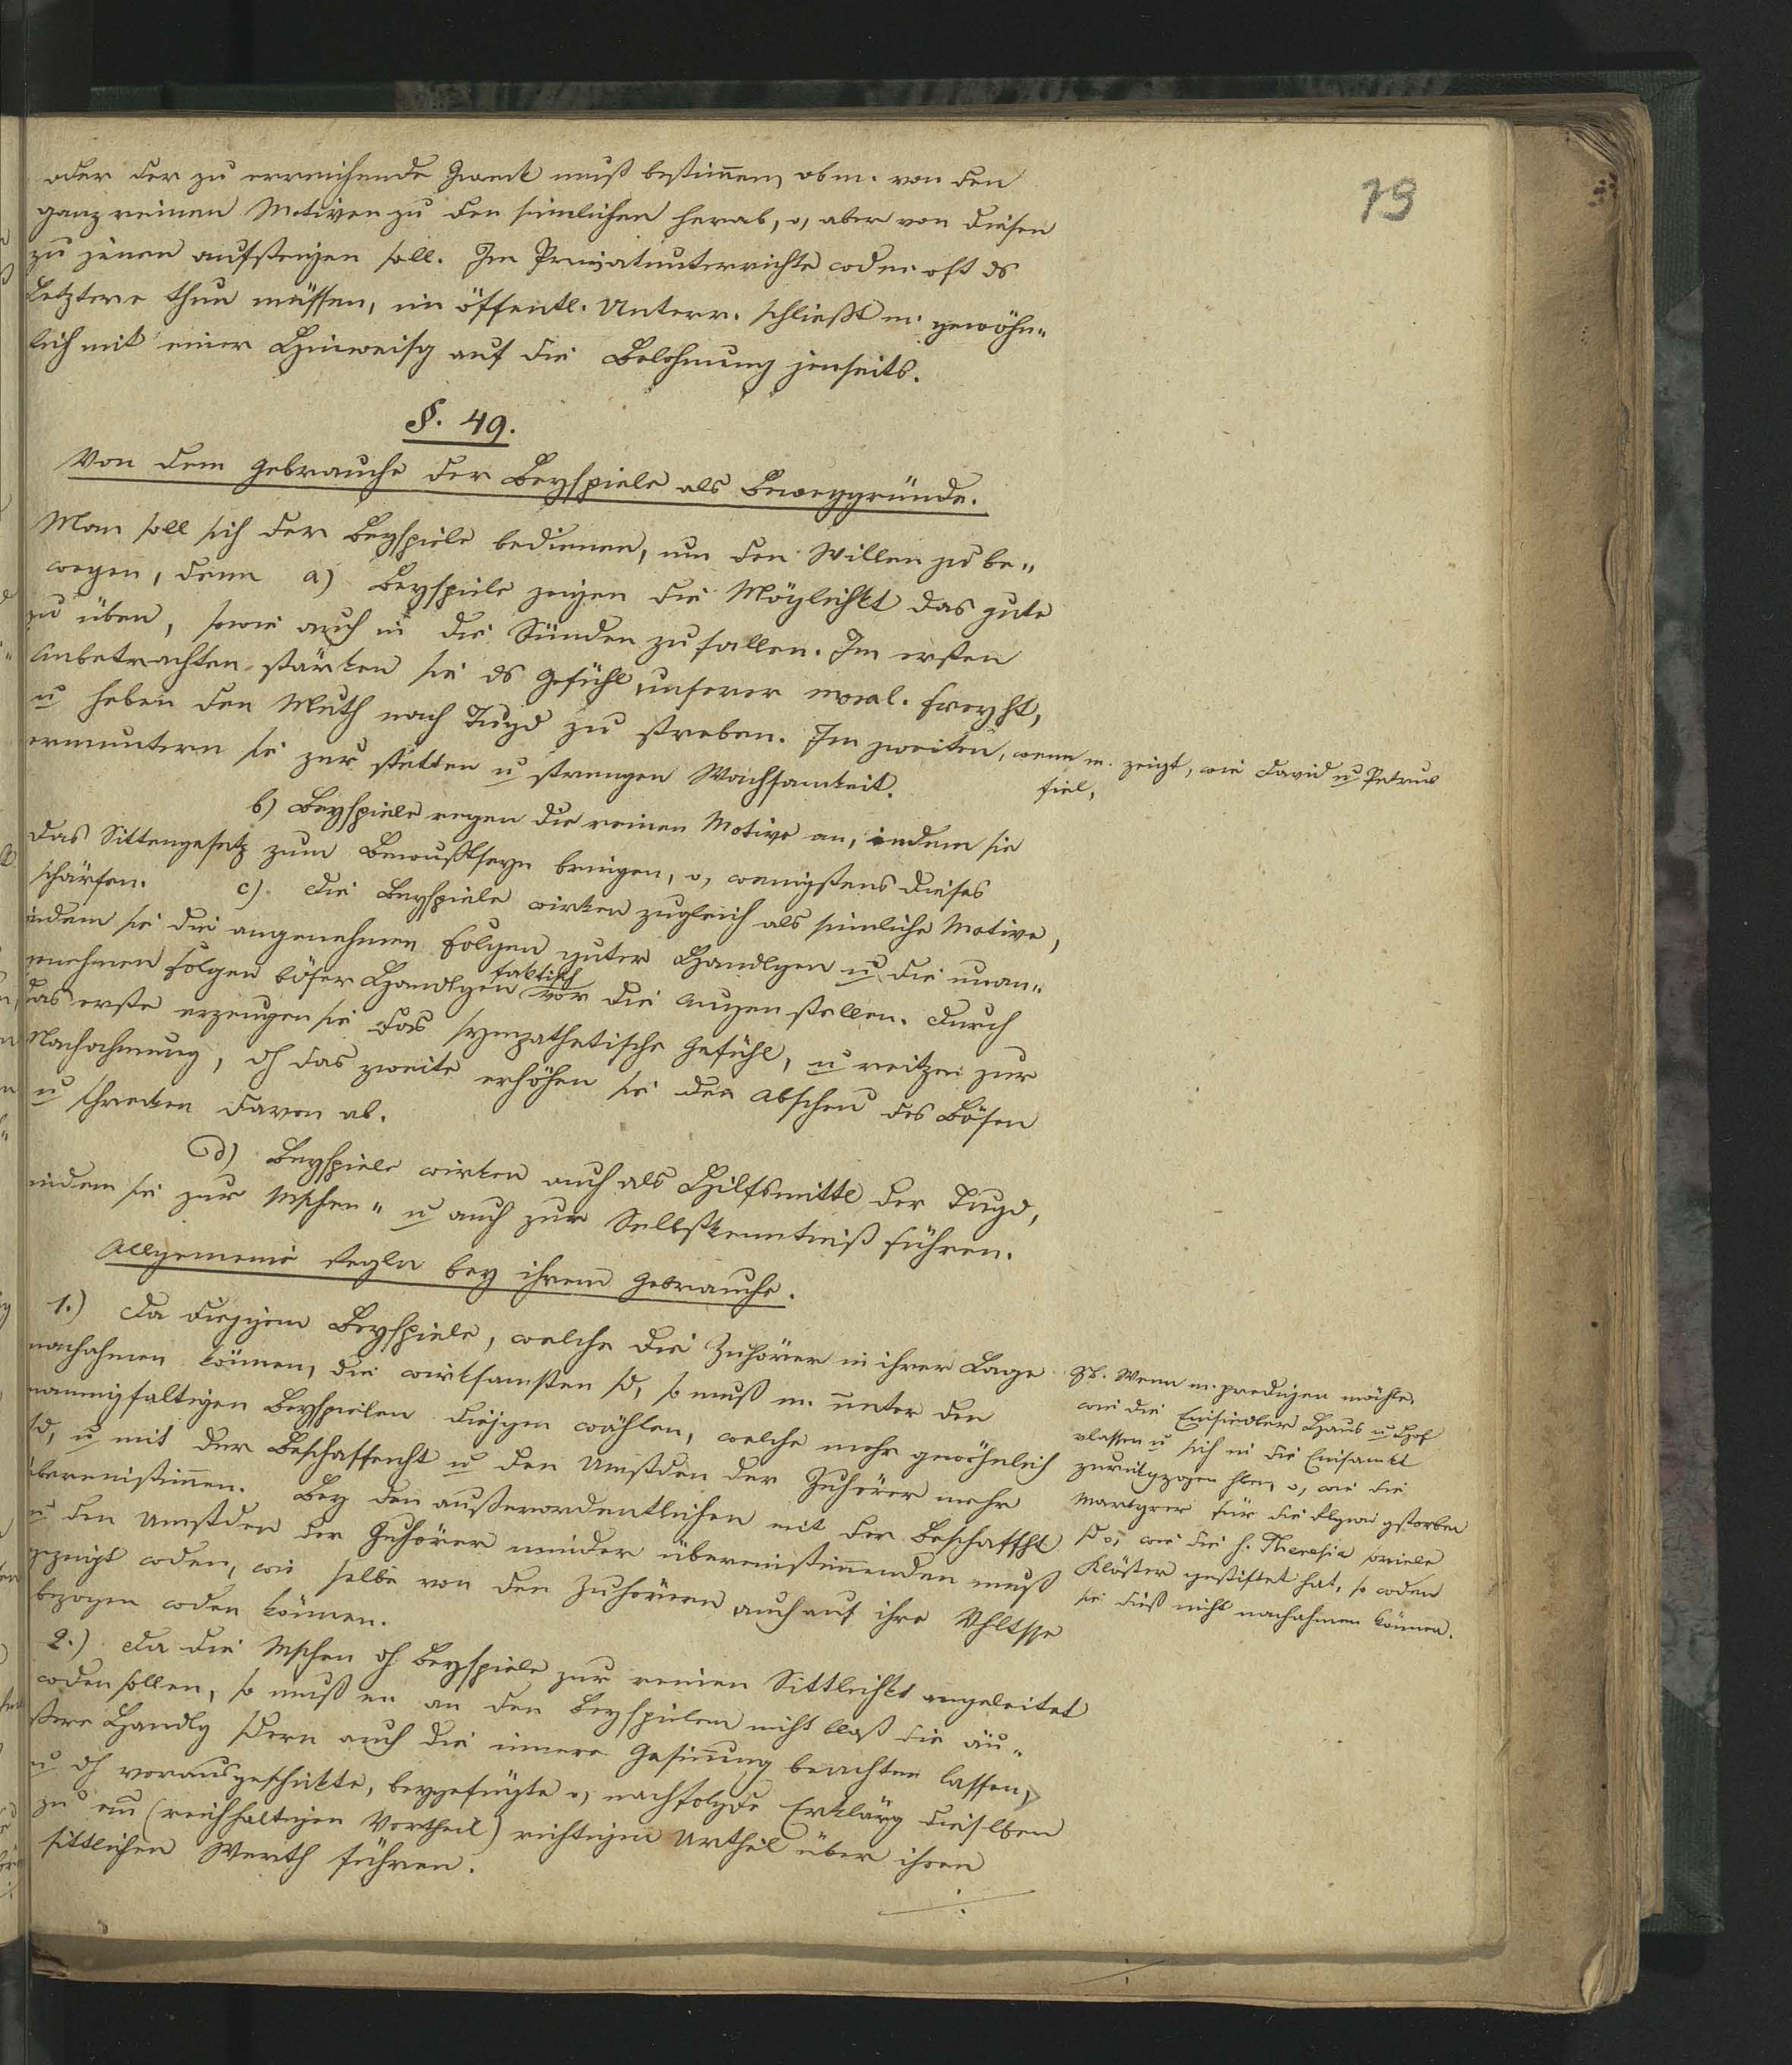 19
oder der zu erreichende Zweck muß bestimmen, ob m. von den
ganz reinen Motiven zu den sinnlichen herab, o, aber von diesen
zu jenen aufsteigen soll. Im Privatunterrichte wd m. oft ds
Letztere thun müssen, im öffentl. Unterr. schließt m. gewöhn„
lich mit einer Hinweisg auf die Belohnung jenseits.
§. 49.
Von dem Gebrauche der Beyspiele als Beweggründe.
Man soll sich der Beyspiele bedienen, um den Willen zu be„
wegen, denn a) Beyspiele zeigen die Möglichkt das gute
zu üben, sowie auch in die Sünden zu fallen. Im ersten
Anbetrachten stärken sie ds Gefühl unserer moral. Freyht,
u heben den Muth nach Tugd zu streben. Im zweiten, wenn m. zeigt, wie David u Petrus
fiel,
ermuntern sie zur stetten u strengen Wachsamkeit.
b) Beyspiele regen die reinen Motive an, indem sie
das Sittengesetz zum Bewußtseyn bringen, o, wenigstens dieses
schärfen. c) Die Beyspiele wirken zugleich als sinnliche Motive,
indem sie die angenehmen Folgen guter Handlgen u die unan„
genehmen Folgen böser Handlgen faktisch vor die Augen stellen. Durch
das erste erzeugen sie das sympathetische Gefühl, u reitzen zur
Nachahmung, dh das zweite erhöhen sie den Abscheu des Bösen
u schrecken davon ab.
d) Beyspiele wirken auch als Hilfsmittl der Tugd,
indem sie zur Mschen„ u auch zur Selbstkenntniß führen.
Allgemeine Regln bey ihrem Gebrauche.
1.) Da diejigen Beyspiele, welche die Zuhörer in ihrer Lage
nachahmen können, die wirksamsten sd, so muß m. unter den
mannigfaltigen Beyspielen diejigen wählen, welche mehr gewöhnlich
sd, u mit der Beschaffenht u den Umstden der Zuhörer mehr
übereinstimmen. Bey den außerordentlichen mit der Beschaffht
u den Umstden der Zuhörer minder übereinstimmenden muß
gezeigt wden, wie selbe von den Zuhörern auch auf ihre Vhltsse
bezogen wden können.
ZB. Wenn m. predigen möchte,
wie die Einsiedler Haus u Hof
vlassen u sich in die Einsamkt
zurückgezogen hben, o, wie die
Martyrer für die Rlgion gstorben
sd o, wie die h. Theresia soviele
Klöster gestiftet hat, so wden
sie dieß nicht nachahmen können.
2.) Da die Mschen dh Beyspiele zur reinen Sittlichkt angeleitet
wden sollen, so muß m. an den Beyspielen nicht bloß die äu„
ßere Handlg sdern auch die innere Gesinnung beachten lassen,
u dh vorausgeschickte, beygefügte o, nachfolgde Erklärg dieslben
zu ein (reichhaltigen Vortheil) richtigen Urtheil über ihren
sittlichen Werth führen.